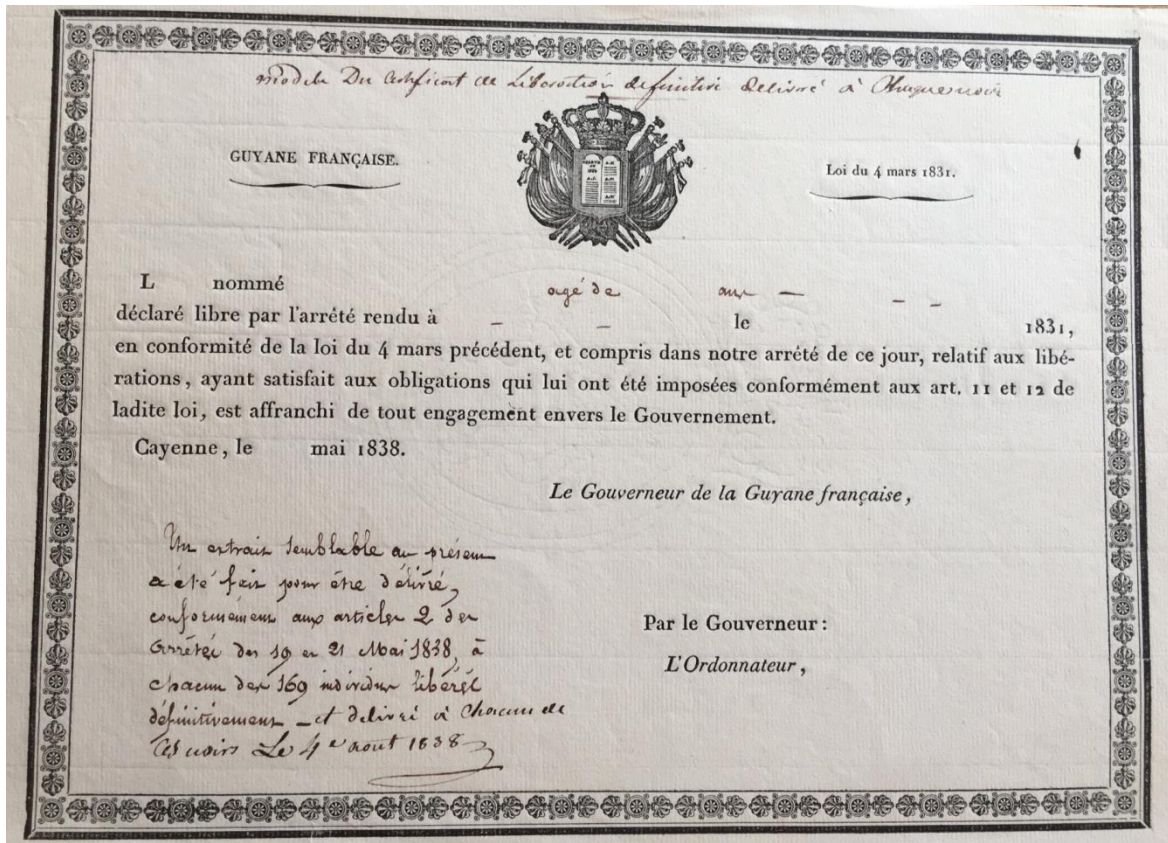 modele Du Certificat de Libération definitive Delivré à Chaque noir
GUYANE FRANÇAISE.
Loi du 4 mars 1831.
L nommé agé de ans — — —
déclaré libre par l'arrêté rendu à — — le 1831,
en conformité de la loi du 4 mars précédent, et compris dans notre arrêté de ce jour, relatif aux libé-
rations, ayant satisfait aux obligations qui lui ont été imposées conformément aux art. 11 et 12 de
ladite loi, est affranchi de tout engagement envers le Gouvernement.
Cayenne, le mai 1838.
Le Gouverneur de la Guyane française,
Un extrait semblable au présent
a été fait pour être délivré,
conformément aux articles 2 des
arrêtés des 19 et 21 Mai 1838, à
chacun des 169 individus libérés
définitivement _ et delivré à Chacun de
Ces noirs Le 4 aout 1838
Par le Gouverneur:
L'Ordonnateur,